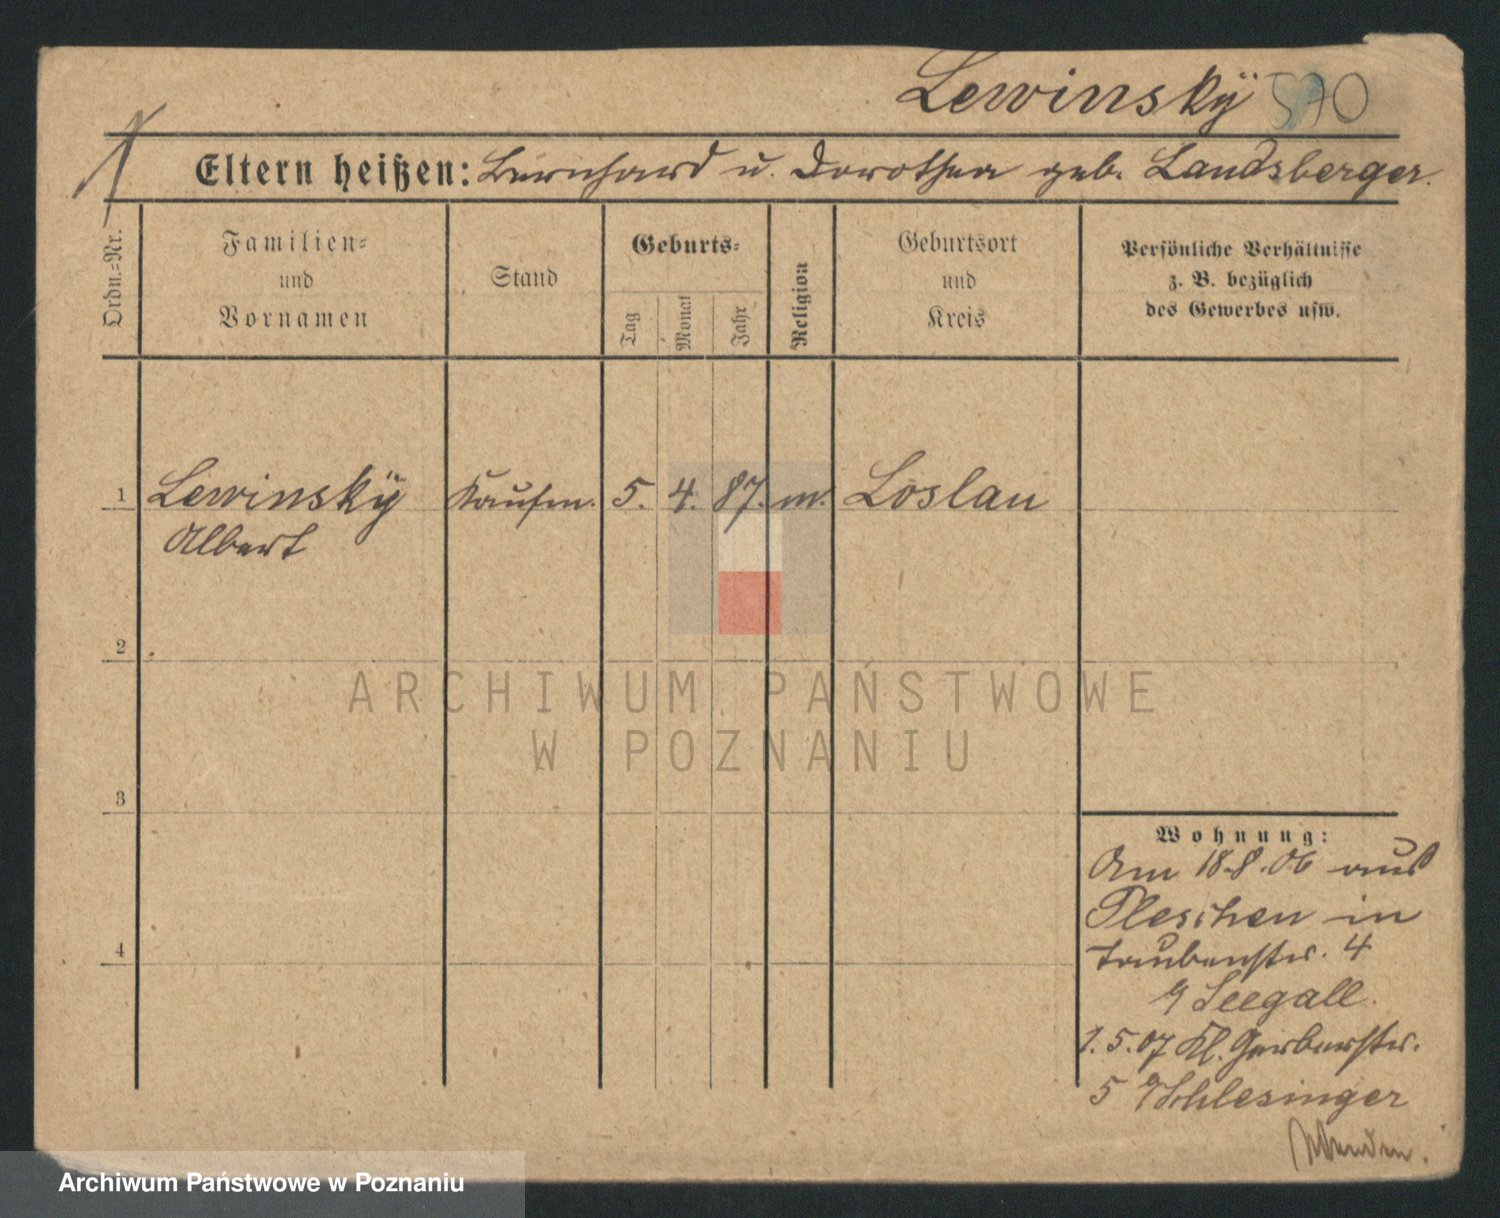 Lewinskÿ 570
Eltern heißen: Bernhard u. Dorothea geb. Landsberger.
Ordn.=Nr.
Familien=
und
Vornamen
Stand
Geburts=
Tag
Monat
Jahr
Religion
Geburtsort
und
Kreis
Persönliche Verhältnisse
z. B. bezüglich
des Gewerbes usw.
1 Lewinskÿ Kaufm. 5. 4. 87. m. Loslau
Albert
2
3
4
ARCHIWUM PAŃSTWOWE
W POZNANIU
Wohnung:
Am 18.8.06 aus
Pleschen in
Taubenstr. 4
Seegall.
1.5.07 Kl. Gerberstr.
5 Schlesinger
Wenden.
Archiwum Państwowe w Poznaniu